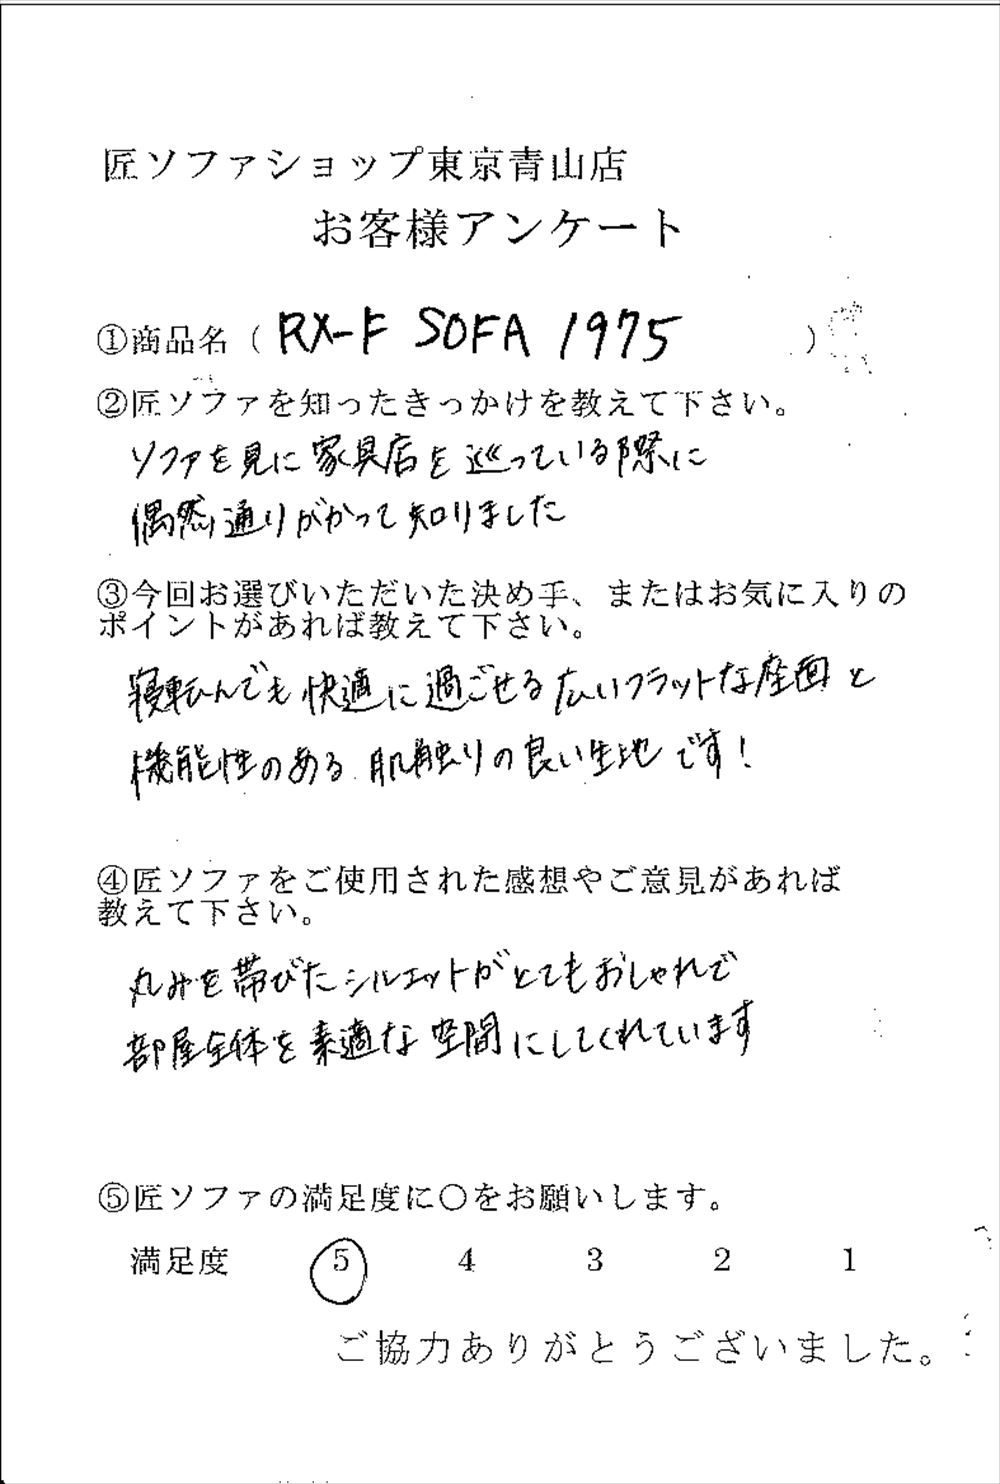 匠ソファショップ東京青山店
お客様アンケート
①商品名（ RX-F SOFA 1975 ）
②匠ソファを知ったきっかけを教えて下さい。
ソファを見に家具店を巡っている際に
偶然通りがかって知りました
③今回お選びいただいた決め手、またはお気に入りの
ポイントがあれば教えて下さい。
寝転んでも快適に過ごせる広いフラットな座面と
機能性のある肌触りの良い生地です！
④匠ソファをご使用された感想やご意見があれば
教えて下さい。
丸みを帯びたシルエットがとてもおしゃれで
部屋全体を素適な空間にしてくれています
⑤匠ソファの満足度に〇をお願いします。
満足度 5 4 3 2 1
ご協力ありがとうございました。